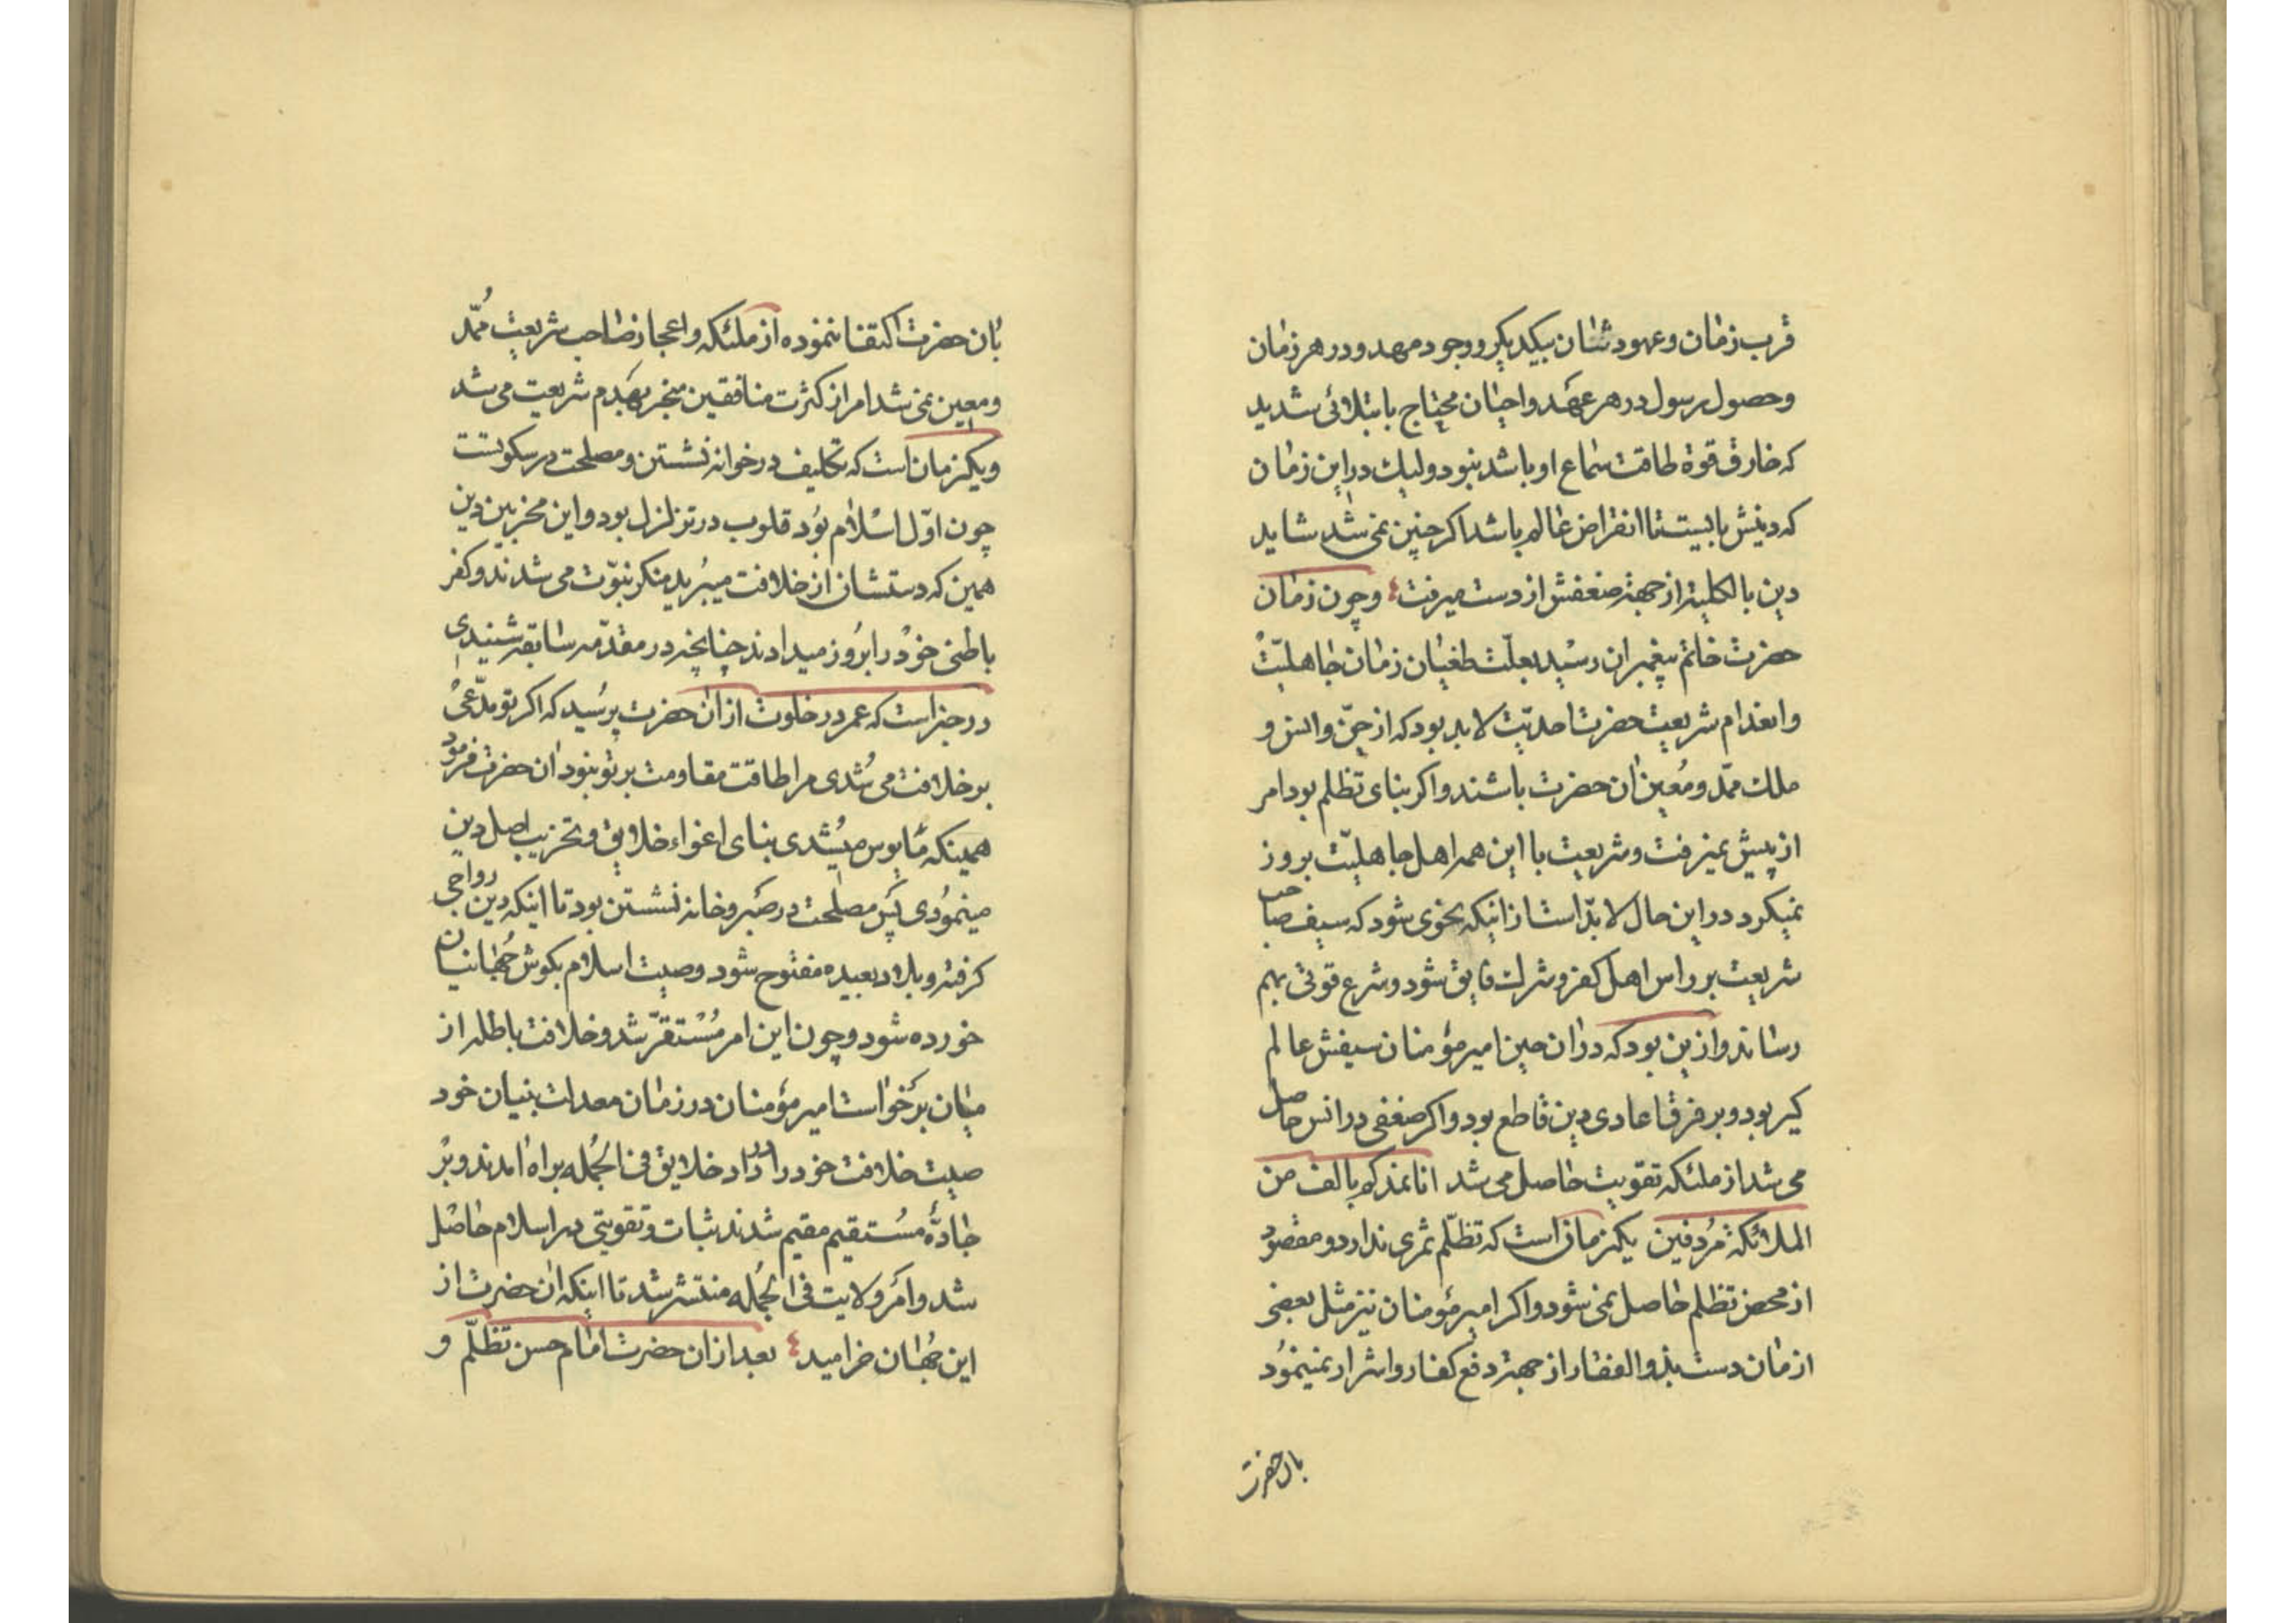 قرب زمان و عهود شان بیکدیکر و وجود مهد و در هر زمان
و حصول رسول در هر عهد و احیان محتاج بابتلائی شدید
که خارق قوة طاقت سماع او باشد نبود ولیك در این زمان
که دینش بایست تا انقراض عالم باشد اکر چنین نمی شد شاید
دین بالکلیة از جهة ضعفش از دست میرفت و چون زمان
حضرت خاتم پیغمبران رسید بعلّت طغیان زمان جاهلیّت
و انعدام شریعت حضرت احدیّت لا بد بود که از جنّ و انس و
ملك ممّد و مُعین ان حضرت باشند و اکر بنای تظلم بود امر
از پیش نمیرفت و شریعت با این همه اهل جاهلیّت بروز
نمیکرد در این حال لا بدّ است از اینکه نحوی شود که سیف صاحب
شریعت بر راس اهل کفر و شرك فایق شود و شرع قوتی بهم
رساند و از ین بود که در ان حین امیر مؤمنان سیفش عالم
کیر بود و بر فرق اعادی دین قاطع بود و اکر ضعفی در انس حاصل
می شد از ملئکه تقویت حاصل می شد انا نمدکم بالف من
الملائکة مُردفین یکزمان است که تظلّم ثمری ندارد و مقصود
از محض تظلم حاصل نمی شود و اکر امیر مؤمنان نیز مثل بعضی
ازمان دست بذو الفقار از جهة دفع کفار و اشرار نمینمُود
بان حضرت
بان حضرت اکتفا ننموده از ملئکه و اعجاز صاحب شریعت ممُّد
و معین نمی شد امر از کثرت منافقین منجر بهَدم شریعت می شد
و یکزمان است که تکلیف در خوانه نشستن و مصلحت در سکوتست
چون اوّل اسلام بوُد قلوب در تزلزل بود و این مخربین دین
همین که دستشان از خلافت میبُرید منکر نبوّت می شدند و کفر
باطنی خوْد را ابرُوز میدادند چنانچه در مقدّمه سابقه شنیدی
در خبر است که عمر در خلوت از ان حضرت پرسُید که اکر تو مدّعی
بر خلافت می شُدی مرا طاقت مقاومت بر تو نبود ان حضرت فرمود
همینکه مٵیوس میشُدی بنای اغواء خلایق و تخریب اصل دین
مینموُدی پَس مصلحت در صَبر و خانه نشستن بود تا اینکه دین رواجی
کرفته و بلاد بعیده مفتوح شود و صیت اسلام بکوش جُهانیان
خورده شود و چون این امر مُسْتقرّ شد و خلافت باطله از
میان برَخواست امیر مؤمنان در زمان معدلت بنیان خود
صیت خلافت خود را در داد خلایق فی الجُمله براه امدند و برْ
جادّهٔ مسُتقیم مقیم شدند ثبات و تقویتی در اسلام حاصْل
شد و امَر ولایت فی الجُمله منتشر شد تا اینکه ان حضرت از
این جُهان خرامید بعد از ان حضرت امام حسن تظلّم و